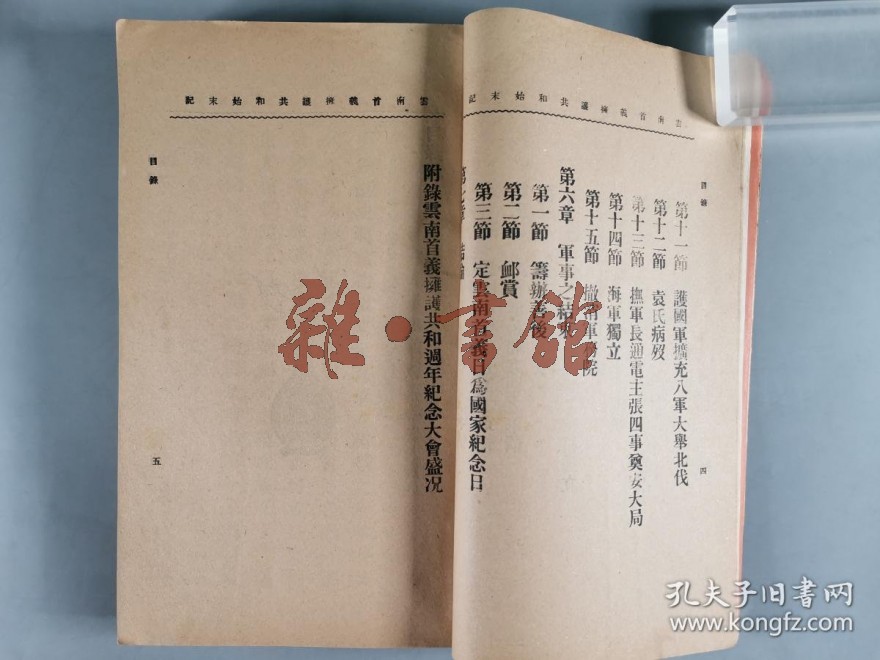 雲南首義擁護共和始末記
目錄
第十一節　護國軍擴充八軍大舉北伐
第十二節　袁氏病歿
第十三節　撫軍長通電主張四事奠安大局
第十四節　海軍獨立
第十五節　撤　軍務院
第六章　軍事之結束
第一節　籌辦善後
第二節　卹賞
第三節　定雲南首義日爲國家紀念日
第七章　結論
四
雲南首義擁護共和始末記
目錄
附錄雲南首義擁護共和週年紀念大會盛况
五
雜·書館
孔夫子旧书网
www.kongfz.com